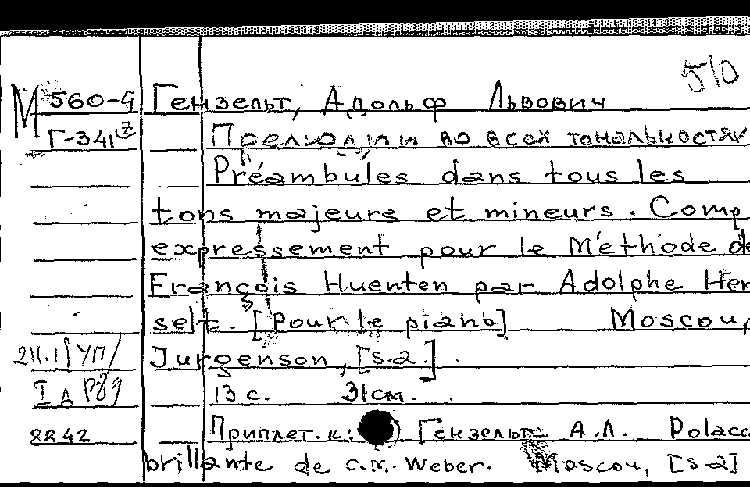 510
М 560-4 Гензельт, Адольф Львович
Г-341 Прелюдии во всех тональностях
Préambules dans tous les
tons majeurs et mineurs. Comp
expressement pour le Méthode de
François Huenten par Adolphe Hen
selt. [Pour le piano] Moscou,
Jurgenson, [s.a.].
13 с. 31 см.
8842 Приплет. к: Гензельт А.Л. Polacc
brillante de C.M. Weber. Moscou, [s.a]